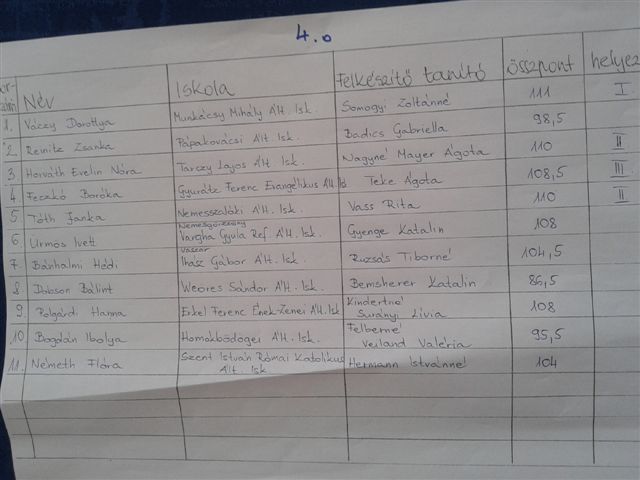 4.o
Név Iskola Felkészítő tanító összpont helyez
1. Váczy Dorottya Munkácsy Mihály Ált. Isk. Somogyi Zoltánné 111 I
2 Reinitz Zsanka Pápakovácsi Ált. Isk. Badics Gabriella 98,5
3 Horváth Evelin Nóra Tarczy Lajos Ált. Isk. Nagyné Mayer Ágota 110 II
4 Feczkó Boróka Gyurátz Ferenc Evangélikus Ált. Isk Teke Ágota 108,5 III
5 Tóth Janka Nemesszalóki Ált. Isk. Vass Rita 110 II
Nemesgörzsöny
6 Urmos Ivett Vargha Gyula Ref. Ált. Isk. Gyenge Katalin 108
Vaszar
7. Bánhalmi Hédi Ihász Gábor Ált. Isk. Ruzsás Tiborné 104,5
8. Dobson Bálint Weöres Sándor Ált. Isk. Bemsherer Katalin 86,5
9. Polgárdi Hanna Erkel Ferenc Ének-Zenei Ált. Isk. Kindertné 108
Surányi Lívia
10 Bogdán Ibolya Homokbödögei Ált. Isk. Felberné 95,5
Veiland Valéria
11. Németh Flóra Szent István Római Katolikus Hermann Istvánné 104
Ált. Isk